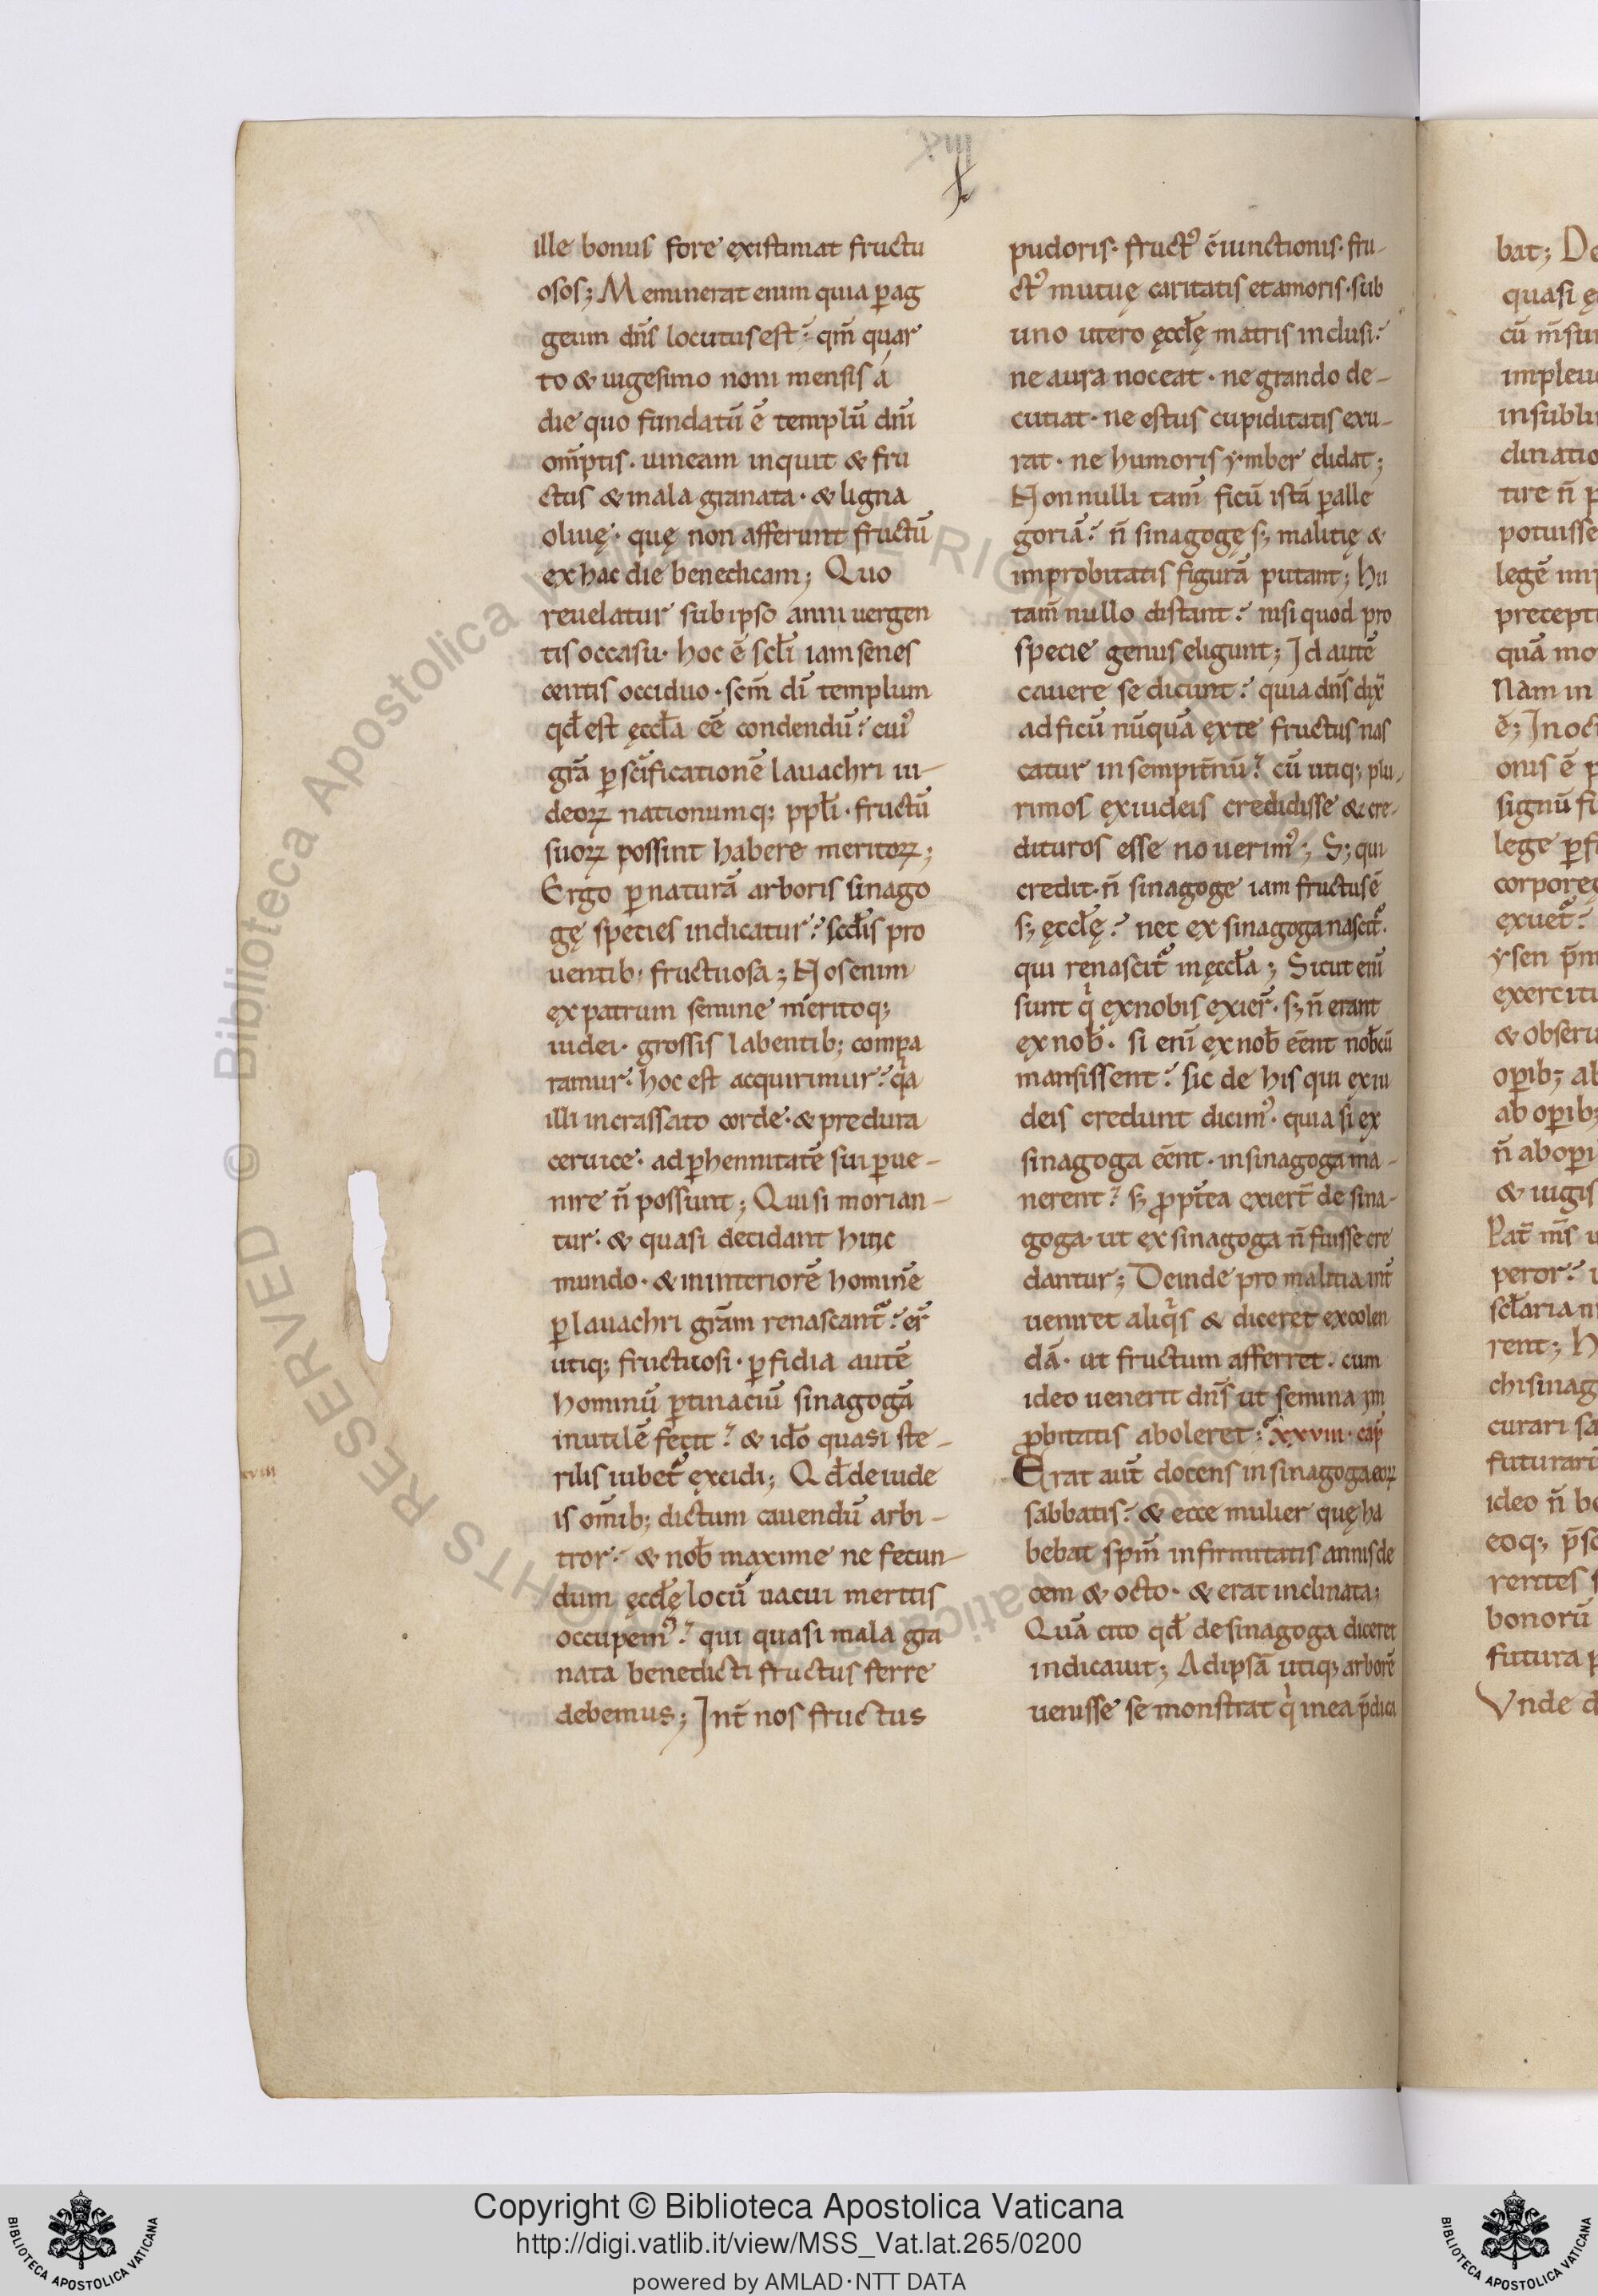 X
ille bonus fore existimat fructu
osos; Meminerat enim quia p̱ag
geum dn̄s locutus est; qm̄ quar
to & uigesimo noni mensis á
die quo fundatū ē templū dn̄i
om̄ptis. uineam inquit & fru
ctus & mala granata. & ligna
oliuę. quę non afferunt fructū
ex hac die benedicam; Quo
reuelatur sub ipso anni uergen
tis occasu. hoc ē scl̄i iam senes
centis occiduo. scm̄ di templum
qd̄ est ęccl̄a eē condendū? cui᾽
grā p̱ scīficationē lauachri iu-
deoꝝ nationumq; ppl̄i. fructū
suoꝝ possint habere meritoꝝ;
Ergo p̱ naturā arboris sinago
gę species indicatur? scdīs pro
uentib; fructuosa; Nos enim
ex patrum semine meritoq;
iudei. grossis labentib; compa
ramur. hoc est acquirimur? qa
illi incrassato corde. & predura
ceruice. ad p̱hennitatē sui p̱ue-
nire n̄ possunt; Qui si morian-
tur. & quasi decidant huic
mundo. & in interiorē hominē
p̱ lauachri grām renascant᾽? er̄
utiq; fructuosi. p̱fidia autē
hominū p̱tinaciū sinagogā
inutilē fecit? & ido quasi ste-
rilis iubet᾽ excidi; Qd̄ de iude
is om̄ib; dictum cauendū arbi-
tror? & nob̄ maxime ne fecun-
dum ęccl̄ę locū uacui meritis
occupem᾽? qui quasi mala gra
nata benedicti fructus ferre
debemus; Int̄ nos fructus
pudoris. fruct᾽ c̄iunctionis. fru-
ct᾽ mutuę caritatis et amoris. sub
uno utero ęccl̄ę matris inclusi?
ne aura noceat. ne grando de-
cutiat. ne estus cupiditatis exu-
rat. ne humoris ymber elidat;
Nonnulli tam̄ ficū istā p̱ alle
goriā? n̄ sinagogę s; malitię &
improbitatis figurā putant; hii
tam̄ nullo distant? nisi quod pro
specie genus eligunt; Id autē
cauere se dicunt? quia dn̄s dix̄
ad ficū nūquā ex te fructus nas
catur in sempit̄nū? cū utiq; plu-
rimos ex iudeis credidisse & cre-
dituros esse nouerim᾽; S; qui
credit. n̄ sinagoge iam fructus ē
s; ęccl̄ę? nec ex sinagoga nascit᾽.
qui renascit᾽ in ęccl̄a; Sicut eni
sunt q̇ ex nobis exier̄. s; n̄ erant
ex nob̄. si enī ex nob̄ eēnt nob̄cū
mansissent? sic de his qui ex iu
deis credunt dicim᾽. quia si ex
sinagoga eēnt. in sinagoga ma-
nerent? s; p̱pt̄ea exiert̄ de sina-
goga. ut ex sinagoga n̄ fuisse cre
dantur; Deinde pro malitia int̄
ueniret aliq̇s & diceret excolen
dā. ut fructum afferret. cum
ideo uenerit dn̄s ut semina im
p̱bitatis aboleret: XXVIII. cap̄
Erat aut̄ docens in sinagoga eoꝝ
sabbatis? & ecce mulier quę ha
bebat spm̄ infirmitatis annis de
cem & octo. & erat inclinata;
Quā cito qd̄ de sinagoga diceret
indicauit; Ad ipsā utiq; arborē
uenisse se monstrat q̇ in ea p̄dica
xviii
bat; De
cū
Nam in
lege
Unde
Copyright © Biblioteca Apostolica Vaticana
http://digi.vatlib.it/view/MSS_Vat.lat.265/0200
powered by AMLAD·NTT DATA
BIBLIOTECA APOSTOLICA VATICANA
BIBLIOTECA APOSTOLICA VATICANA